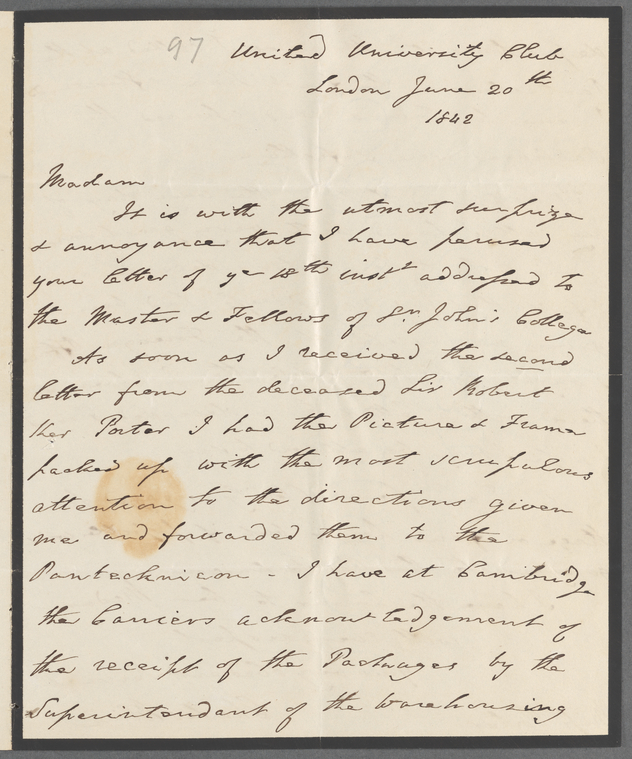 97
United University Club
London June 20th
1842
Madam
It is with the utmost surprize
& annoyance that I have perused
your letter of ye 18th instt addressed to
the Master & Fellows of St. John's College
As soon as I received the second
letter from the deceased Sir Robert
Ker Porter I had the Picture & Frame
packed up with the most scrupulous
attention to the directions given
me and forwarded them to the
Pantechnicon - I have at Cambridge
the Carriers acknowledgement of
the receipt of the Packages by the
Superintendant of the Warehousing